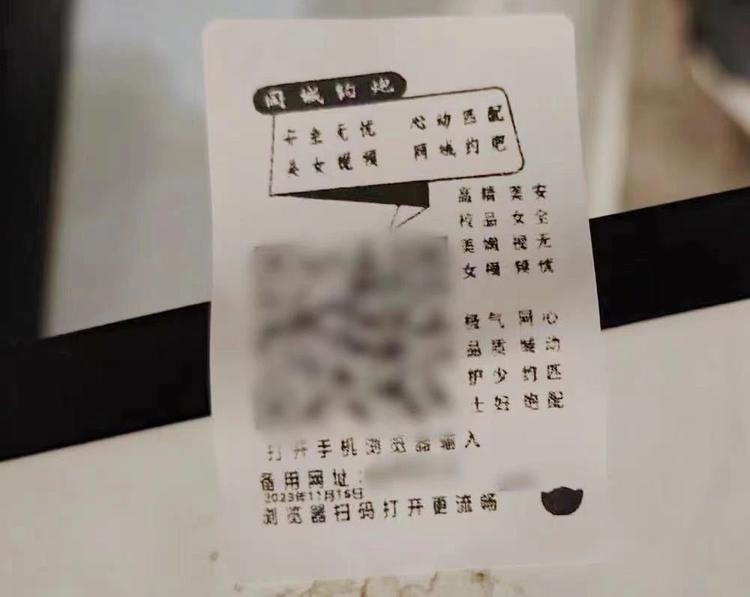 同城约炮
安全无忧 心动匹配
美女视频 同城约吧
高校美女
精品嫩模
美女视频
安全无忧
极品护士
气质少妇
同城约炮
心动匹配
打开手机浏览器输入
备用网址:
2023年11月15日
浏览器扫码打开更流畅